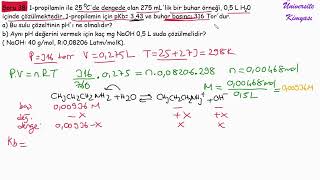 Soru 38) 1-propilamin ile 25 °C'de dengede olan 275 mL'lik bir buhar örneği, 0,5 L H₂O
içinde çözülmektedir. 1-propilamin için pKb= 3,43 ve buhar basıncı 316 Tor' dur.
a) Bu sulu çözeltinin pH' ı ne olmalıdır?
b) Aynı pH değerini vermek için kaç mg NaOH 0,5 L suda çözülmelidir?
( NaOH: 40 g/mol, R:0,08206 Latm/molK).
Üniversite
Kimyası
P = 316 torr V = 0,275L T = 25+273 = 298K
P.V = n.RT 316/760 . 0,275 = n. 0,0821.298 n = 0,00468 mol
M = 0,00468mol/0,5L = 0,00936M
CH₃CH₂CH₂NH₂ + H₂O ⇌ CH₃CH₂CH₂NH₃⁺ + OH⁻
baş. 0,00936M — —
değ. -x +x +x
denge. 0,00936-x x x
Kb =